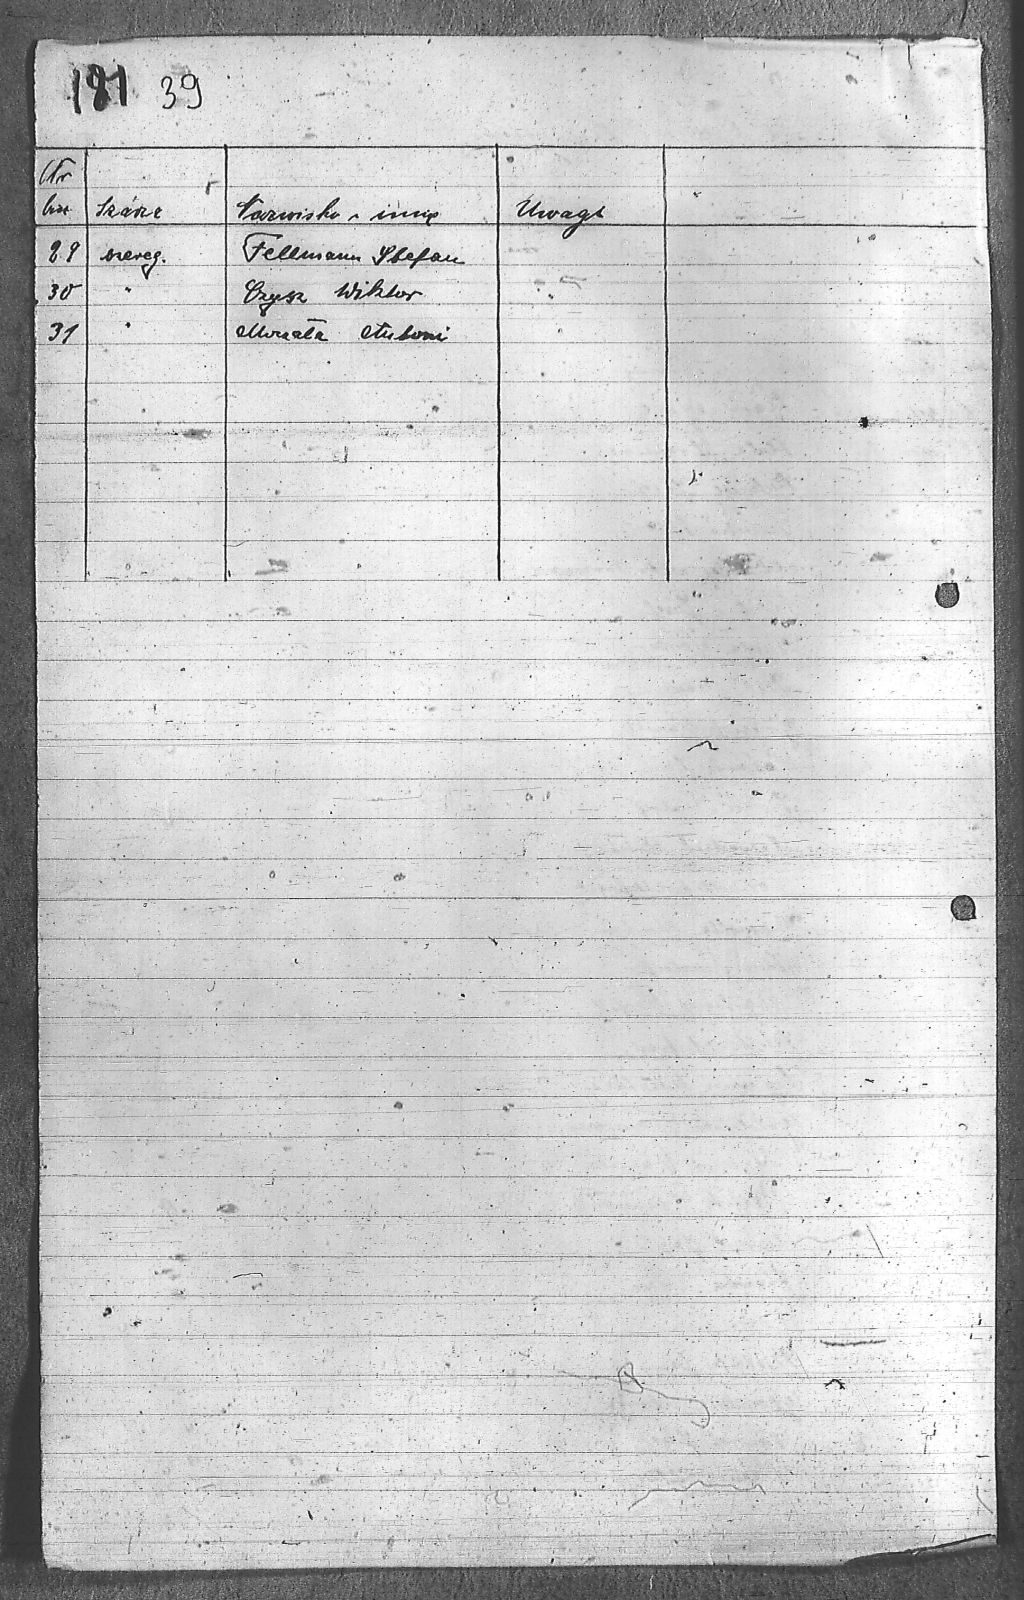 181 39
Nr
bież Szarża Nazwisko i imię Uwagi
29 szereg. Fellmann Stefan
30 " Czysz Wiktor
31 " Antoni